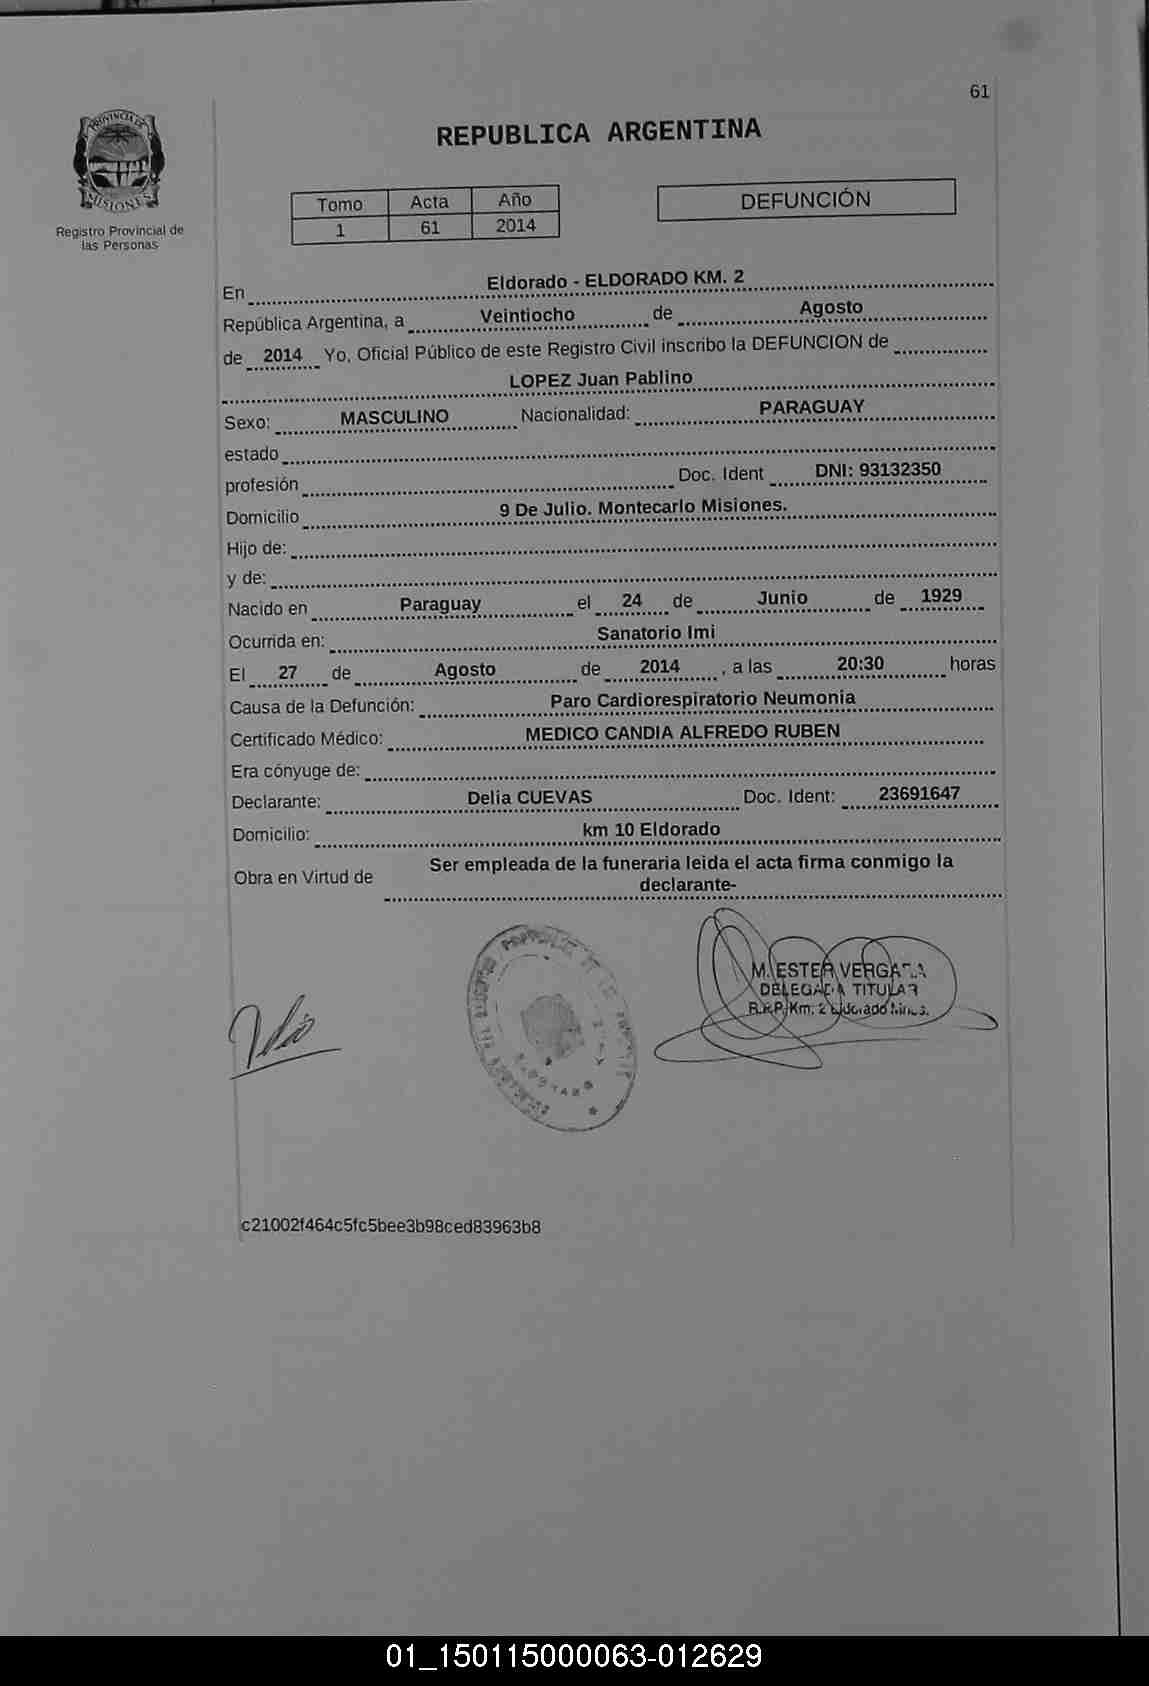 61
PROVINCIA DE
MISIONES
Registro Provincial de
las Personas
REPUBLICA ARGENTINA
Tomo Acta Año
1 61 2014
DEFUNCIÓN
En Eldorado - ELDORADO KM. 2
República Argentina, a Veintiocho de Agosto
de 2014 Yo, Oficial Público de este Registro Civil inscribo la DEFUNCION de
LOPEZ Juan Pablino
Sexo: MASCULINO Nacionalidad: PARAGUAY
estado
profesión Doc. Ident DNI: 93132350
Domicilio 9 De Julio. Montecarlo Misiones.
Hijo de:
y de:
Nacido en Paraguay el 24 de Junio de 1929
Ocurrida en: Sanatorio Imi
El 27 de Agosto de 2014 , a las 20:30 horas
Causa de la Defunción: Paro Cardiorespiratorio Neumonia
Certificado Médico: MEDICO CANDIA ALFREDO RUBEN
Era cónyuge de:
Declarante: Delia CUEVAS Doc. Ident: 23691647
Domicilio: km 10 Eldorado
Obra en Virtud de Ser empleada de la funeraria leida el acta firma conmigo la
declarante-
M. ESTER VERGARA
DELEGADA TITULAR
R.P.P. Km. 2 Eldorado Mnes.
ELDORADO
c21002f464c5fc5bee3b98ced83963b8
01_150115000063-012629